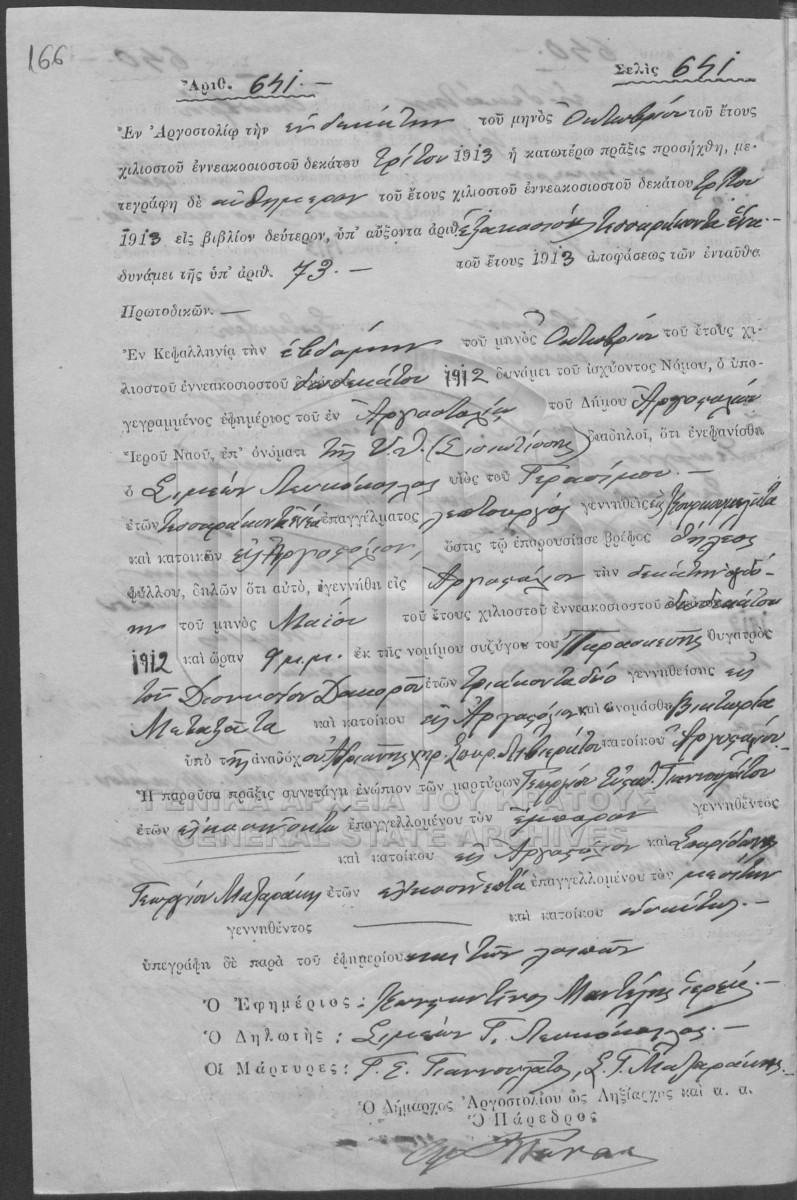 166
Ἀριθ. 641. —
Σελὶς 641
Ἐν Ἀργοστολίῳ τὴν ενδεκάτην τοῦ μηνὸς Οκτωβρίου τοῦ ἔτους
χιλιοστοῦ ἐννεακοσιοστοῦ δεκάτου τρίτου 1913 ἡ κατωτέρω πρᾶξις προσήχθη, με-
τεγράφη δὲ αὐθημερὸν τοῦ ἔτους χιλιοστοῦ ἐννεακοσιοστοῦ δεκάτου τρίτου
1913 εἰς βιβλίον δεύτερον, ὑπ' αὔξοντα ἀριθ. εξακοσιοστὸν τεσσαράκοντα ἕνα. —
δυνάμει τῆς ὑπ' ἀριθ. 73. — τοῦ ἔτους 1913 ἀποφάσεως τῶν ἐνταῦθα
Πρωτοδικῶν. —
Ἐν Κεφαλληνίᾳ τὴν εβδόμην τοῦ μηνὸς Οκτωβρίου τοῦ ἔτους χι-
λιοστοῦ ἐννεακοσιοστοῦ δωδεκάτου 1912 δυνάμει τοῦ ἰσχύοντος Νόμου, ὁ ὑπο-
γεγραμμένος ἐφημέριος τοῦ ἐν Ἀργοστολίῳ τοῦ Δήμου Ἀργοστολίου
Ἱεροῦ Ναοῦ, ἐπ' ὀνόματι τῆς Υ.Θ. (Σισιωτίσσης) διαδηλοῖ, ὅτι ἐνεφανίσθη
ὁ Σιμεών Λευκόκοιλος υἱὸς τοῦ Γερασίμου. —
ἐτῶν τεσσαράκοντα ἐννέα ἐπαγγέλματος λεπτουργὸς γεννηθεὶς εἰς Κουρκουμελάτα
καὶ κατοικῶν εἰς Ἀργοστόλιον, ὅστις τῷ ἐπαρουσίασε βρέφος θήλεος
φύλλου, δηλῶν ὅτι αὐτό, ἐγεννήθη εἰς Ἀργοστόλιον τὴν δεκάτην ογδό-
ην τοῦ μηνὸς Μαΐου τοῦ ἔτους χιλιοστοῦ ἐννεακοσιοστοῦ δωδεκάτου
1912 καὶ ὥραν 9 μ.μ. ἐκ τῆς νομίμου συζύγου του Παρασκευῆς θυγατρὸς
τοῦ Διονυσίου Δακορου ἐτῶν τριάκοντα δύο γεννηθείσης εἰς
Μεταξάτα καὶ κατοίκου εἰς Ἀργοστόλιον καὶ ὠνομάσθη Βικτωρία
ὑπὸ τῆς ἀναδόχου Ἀδριανῆς χήρ. Σπυρ. Λιβιεράτου κατοίκου Ἀργοστολίου. —
Ἡ παροῦσα πρᾶξις συνετάγη ἐνώπιον τῶν μαρτύρων Γεωργίου Εὐσταθ. Γιαννουλάτου
ἐτῶν εἴκοσι ὀκτὼ ἐπαγγελλομένου τὸν ἔμπορον γεννηθέντος
καὶ κατοίκου εἰς Ἀργοστόλιον καὶ Σπυρίδωνος
Γεωργίου Μαζαράκη ἐτῶν εἴκοσι ἑπτὰ ἐπαγγελλομένου τὸν μεσίτην
γεννηθέντος — καὶ κατοίκου ωσαύτως. —
ὑπεγράφη δὲ παρὰ τοῦ ἐφημερίου καὶ τῶν λοιπῶν
Ὁ Ἐφημέριος: Κωνσταντῖνος Μαντέλης ἱερεύς. —
Ὁ Δηλωτής: Σιμεὼν Γ. Λευκόκοιλος. —
Οἱ Μάρτυρες: Γ. Ε. Γιαννουλᾶτος, Σ. Γ. Μαζαράκης. —
Ὁ Δήμαρχος Ἀργοστολίου ὡς Ληξίαρχος καὶ α. α.
Ὁ Πάρεδρος
ΓΕΝΙΚΑ ΑΡΧΕΙΑ ΤΟΥ ΚΡΑΤΟΥΣ
GENERAL STATE ARCHIVES